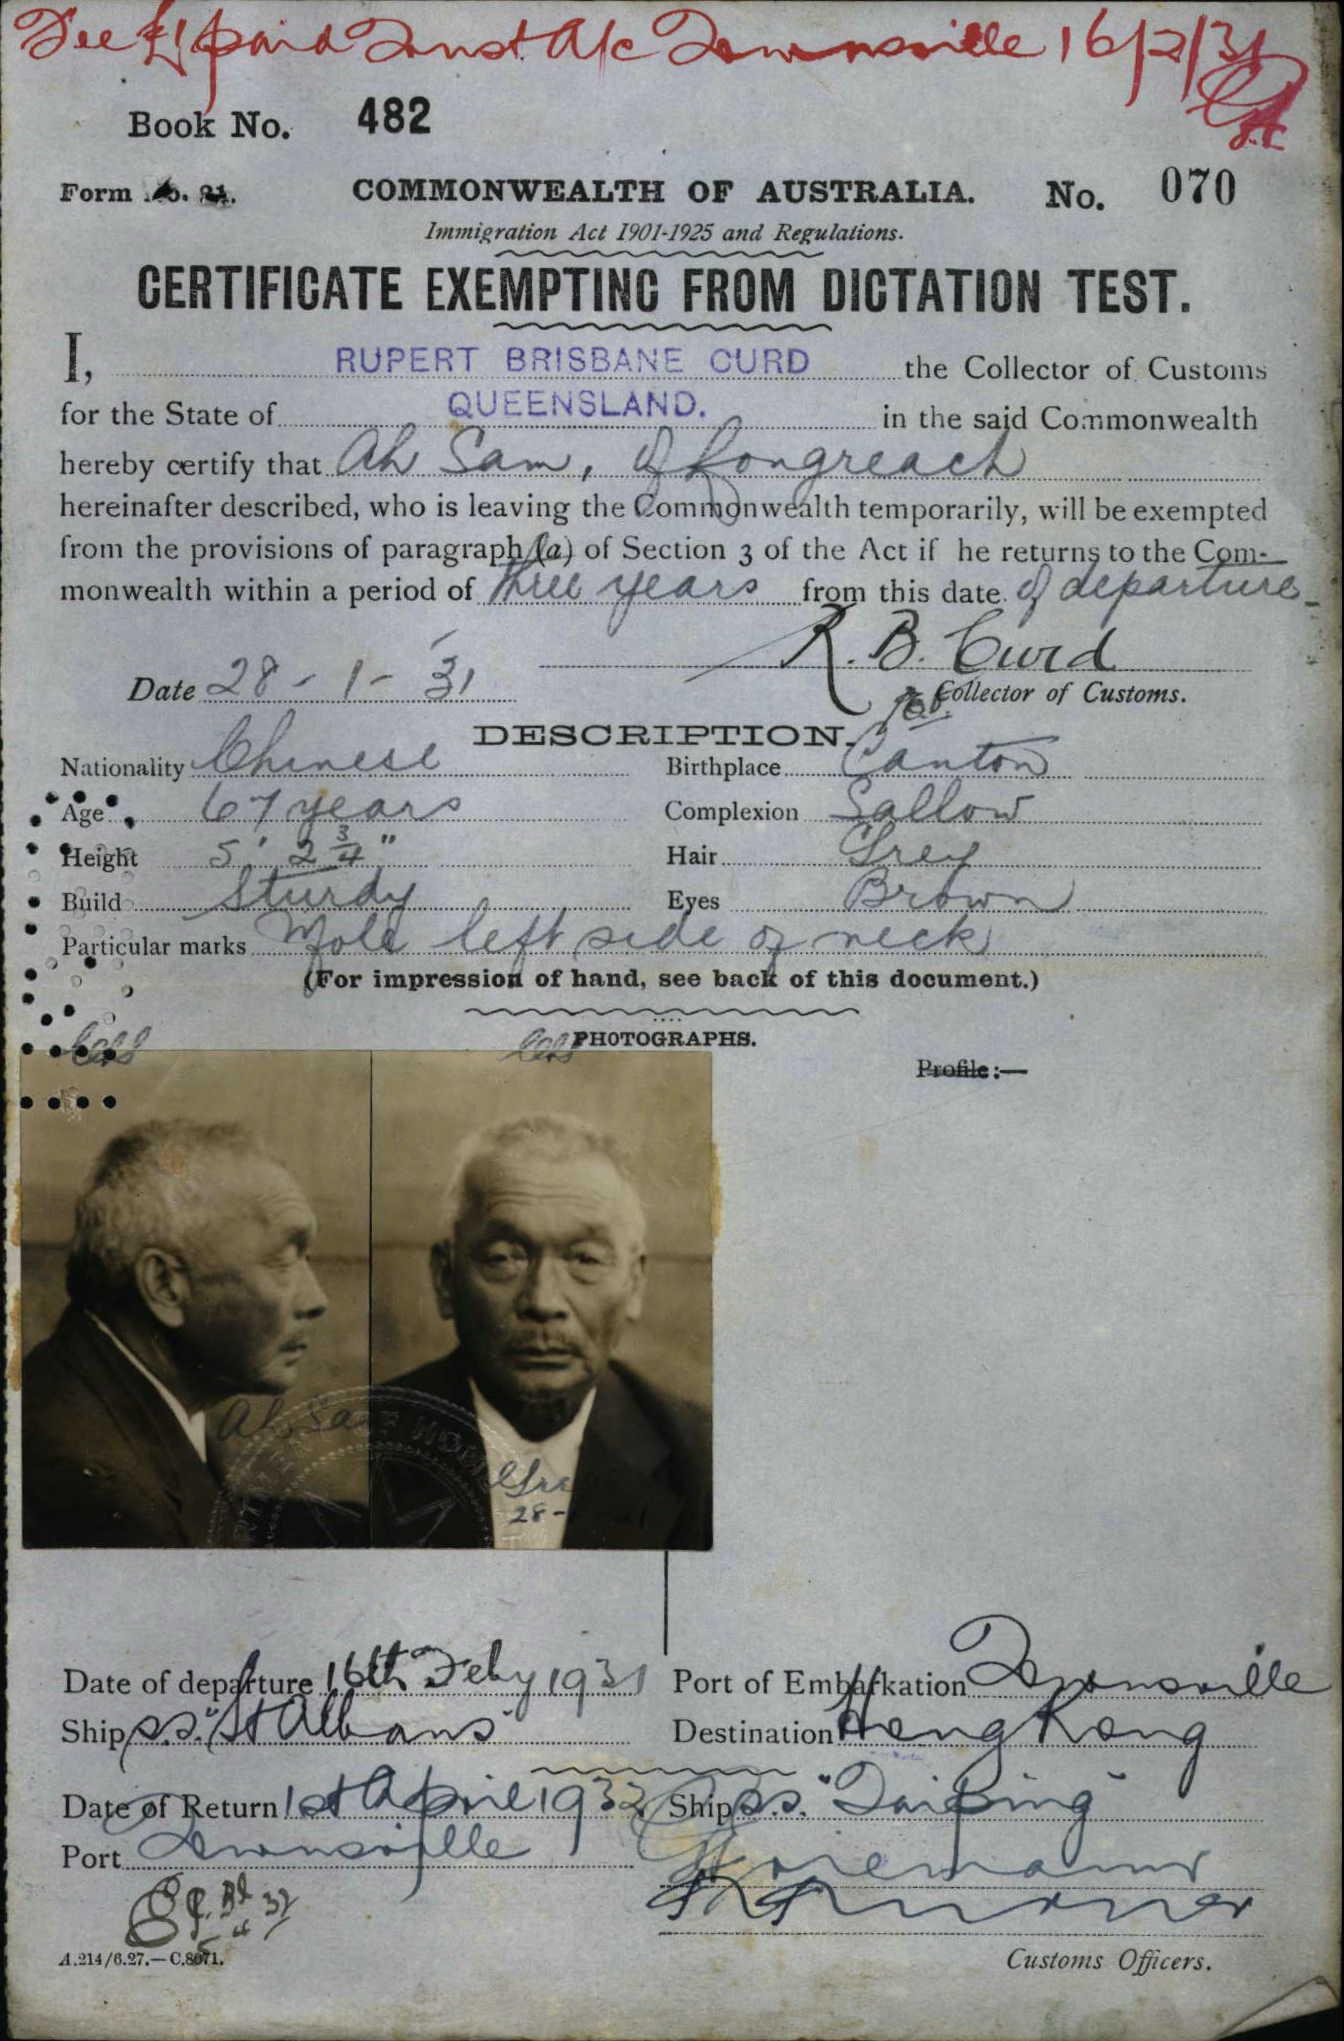 Fee £1 paid Trust A/c Townsville 16/2/31
Book No. 482
Form No. 21.
COMMONWEALTH OF AUSTRALIA. No. 070
Immigration Act 1901-1925 and Regulations.
CERTIFICATE EXEMPTING FROM DICTATION TEST.
I, RUPERT BRISBANE CURD the Collector of Customs
for the State of QUEENSLAND. in the said Commonwealth
hereby certify that Ah Sam, of Longreach
hereinafter described, who is leaving the Commonwealth temporarily, will be exempted
from the provisions of paragraph (a) of Section 3 of the Act if he returns to the Com-
monwealth within a period of three years from this date of departure
R. B. Curd
Date 28-1-31 Collector of Customs.
DESCRIPTION.
Nationality Chinese Birthplace Canton
Age 67 years Complexion Sallow
Height 5' 2 3/4" Hair Grey
Build Sturdy Eyes Brown
Particular marks Mole left side of neck
(For impression of hand, see back of this document.)
PHOTOGRAPHS.
Profile:—
Ah Sam
28-
Date of departure 16th Feby 1931 Port of Embarkation Townsville
Ship s.s. "St Albans" Destination Hong Kong
Date of Return 1st April 1932 Ship s.s. "Taiping"
Port Townsville
A.214/6.27.—C.8071. Customs Officers.